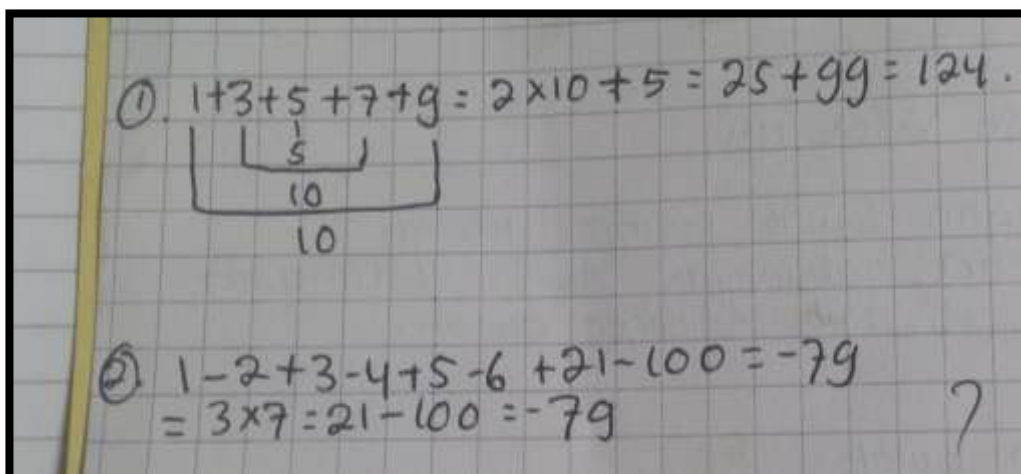 ① 1+3+5+7+9 = 2×10+5 = 25+99 = 124.
5
10
10
② 1-2+3-4+5-6 +21-100 = -79
= 3×7 = 21-100 = -79
?